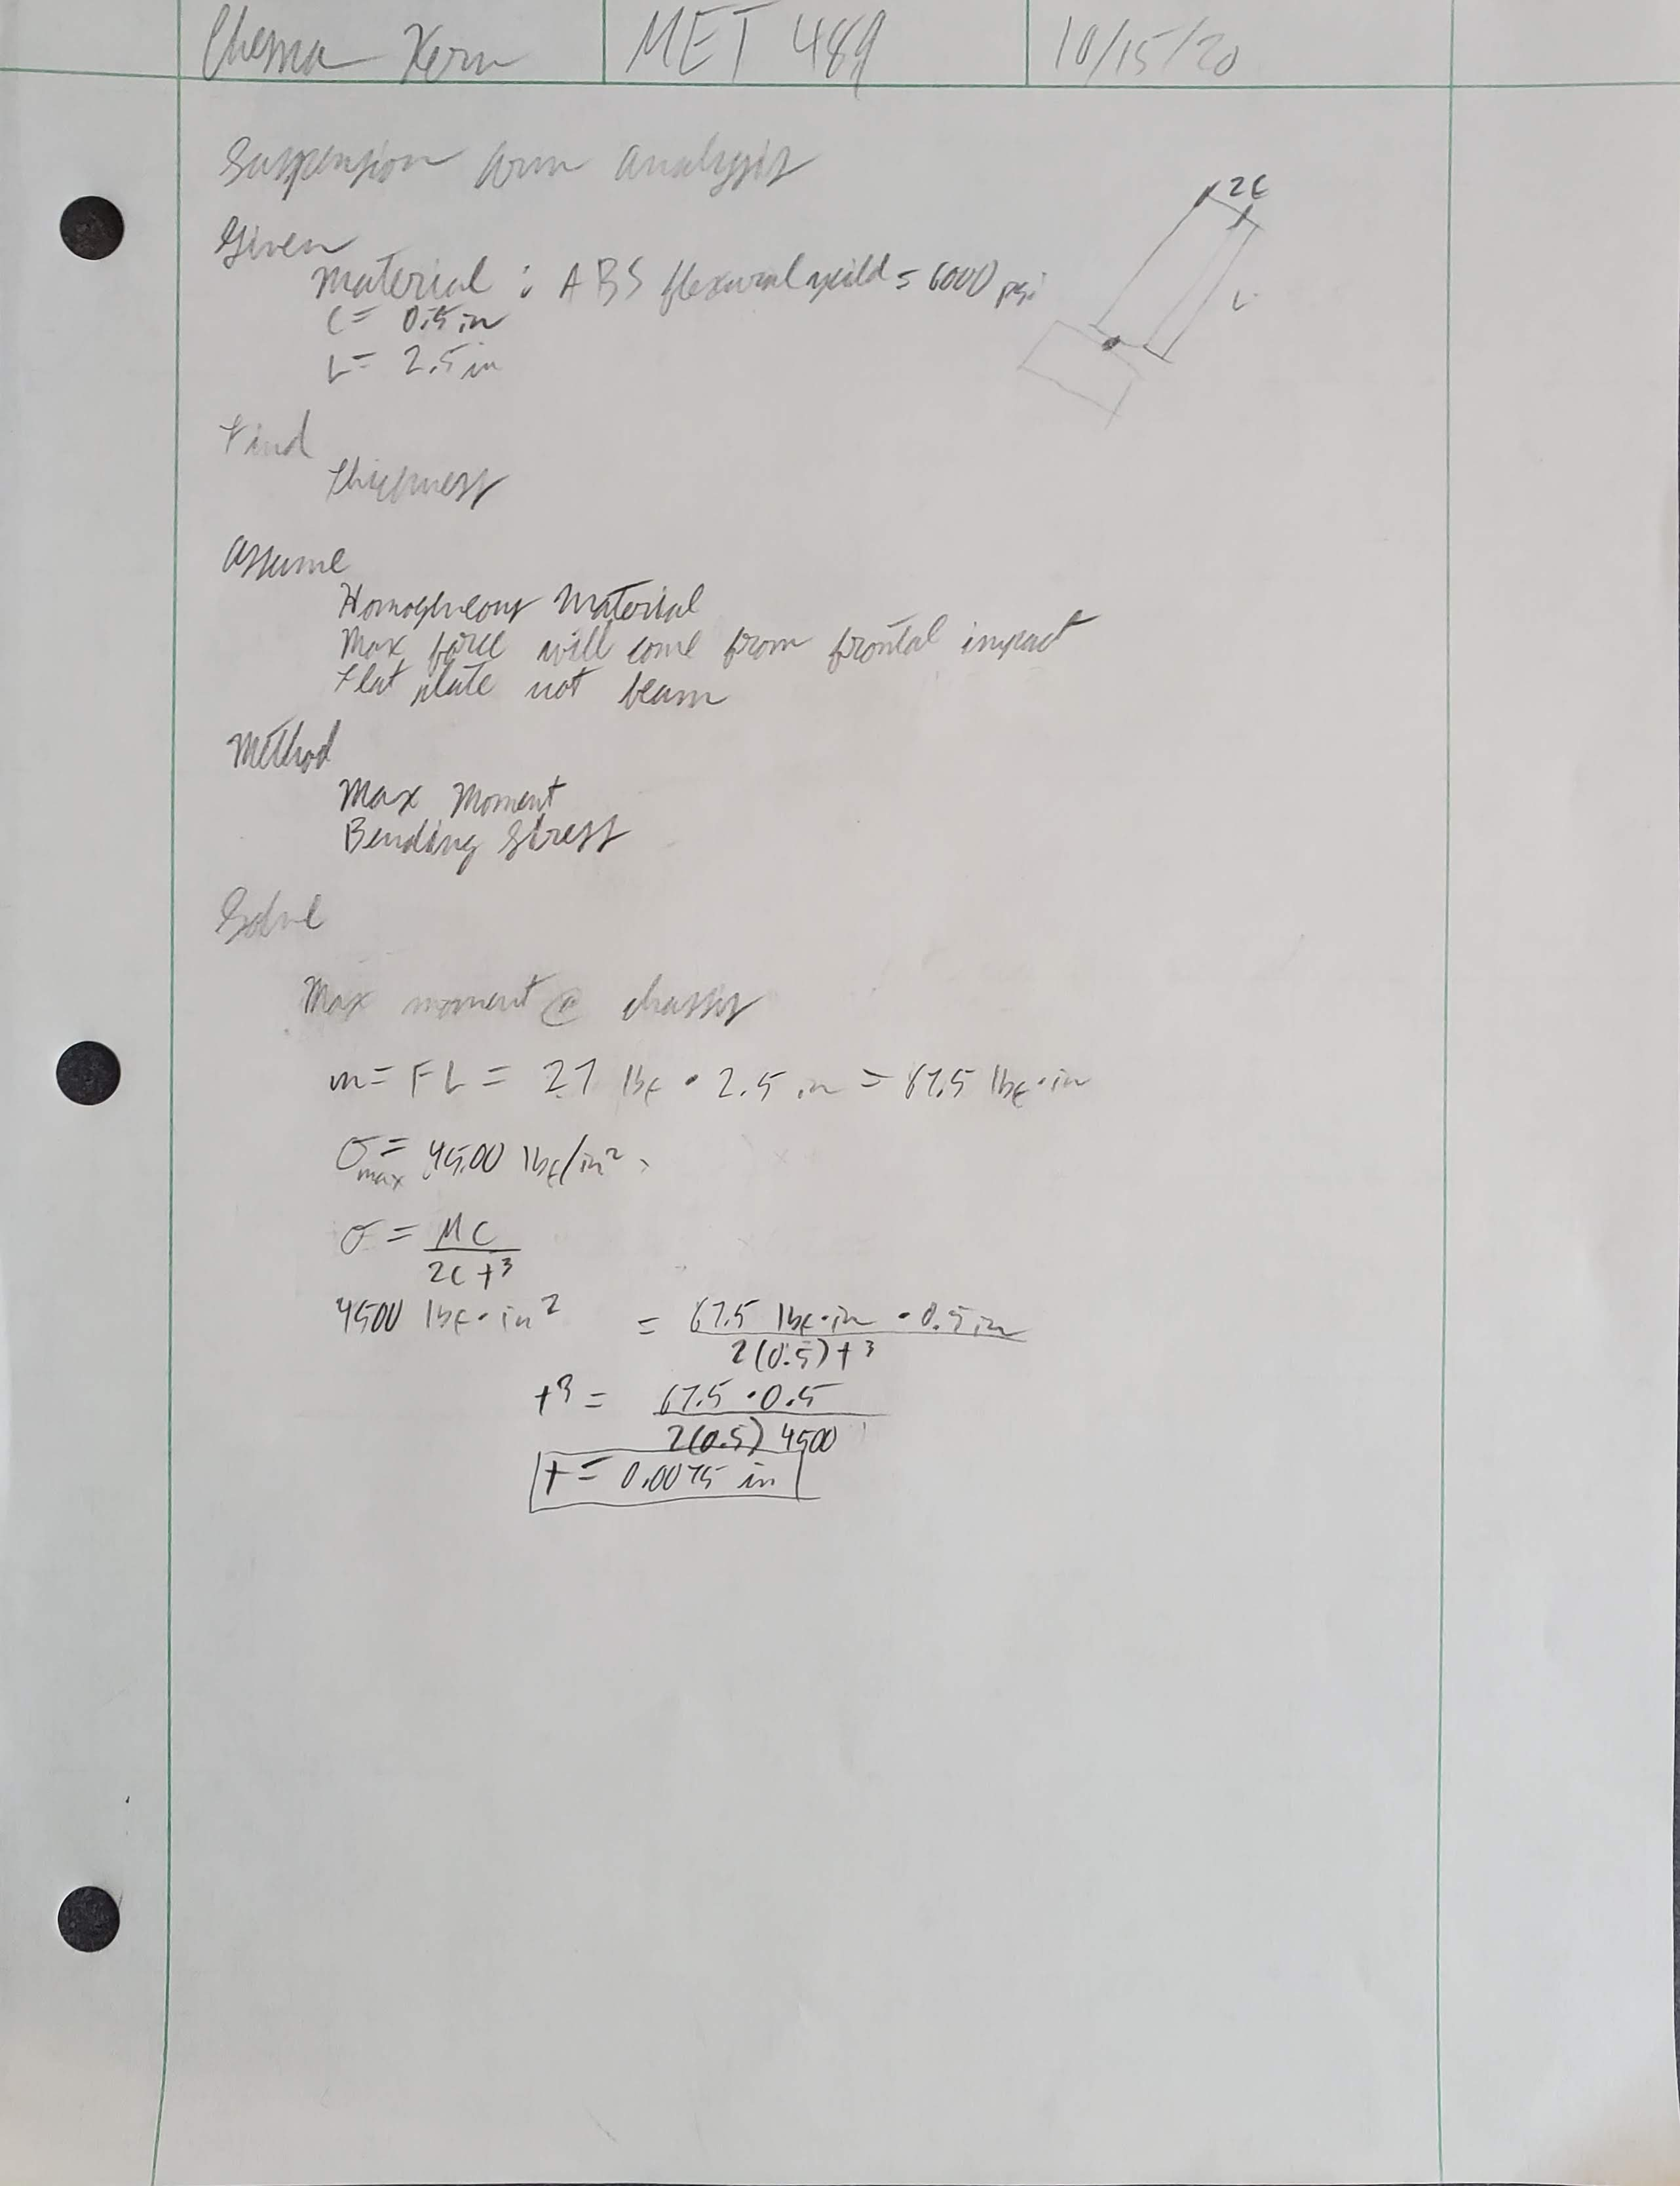 Chema Kern MET 489 10/15/20
Suspension Arm analysis
2C
Given
Material : ABS flexural yeild = 6000 psi
C = 0.5 in
L
L = 2.5 in
Find
thickness
Assume
Homogheneous Material
Max force will come from frontal impact
Flat plate not beam
Method
Max Moment
Bending Stress
Solve
Max moment @ chassis
m = FL = 27 lbf • 2.5 in = 67.5 lbf•in
σmax = 4500 lbf/in²
σ = MC / 2C t³
4500 lbf•in² = 67.5 lbf•in • 0.5 in / 2(0.5) t³
t³ = 67.5 • 0.5 / 2(0.5) 4500
t = 0.0075 in